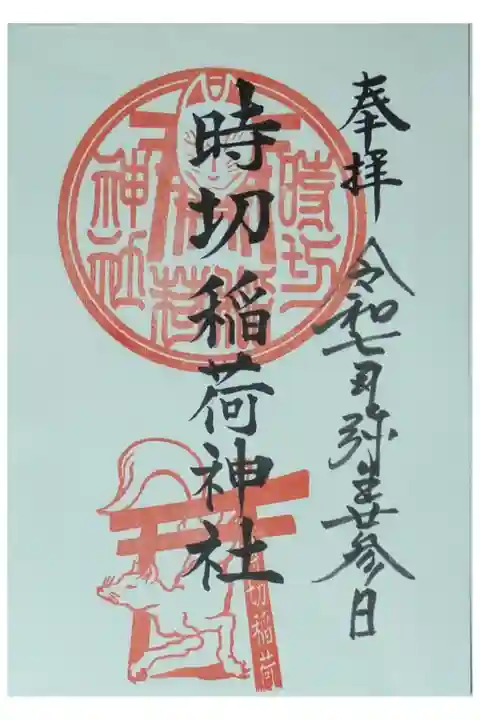 奉拝 令和七年弥生廿参日
時切稲荷神社
時切
稲荷
神社
切稲荷